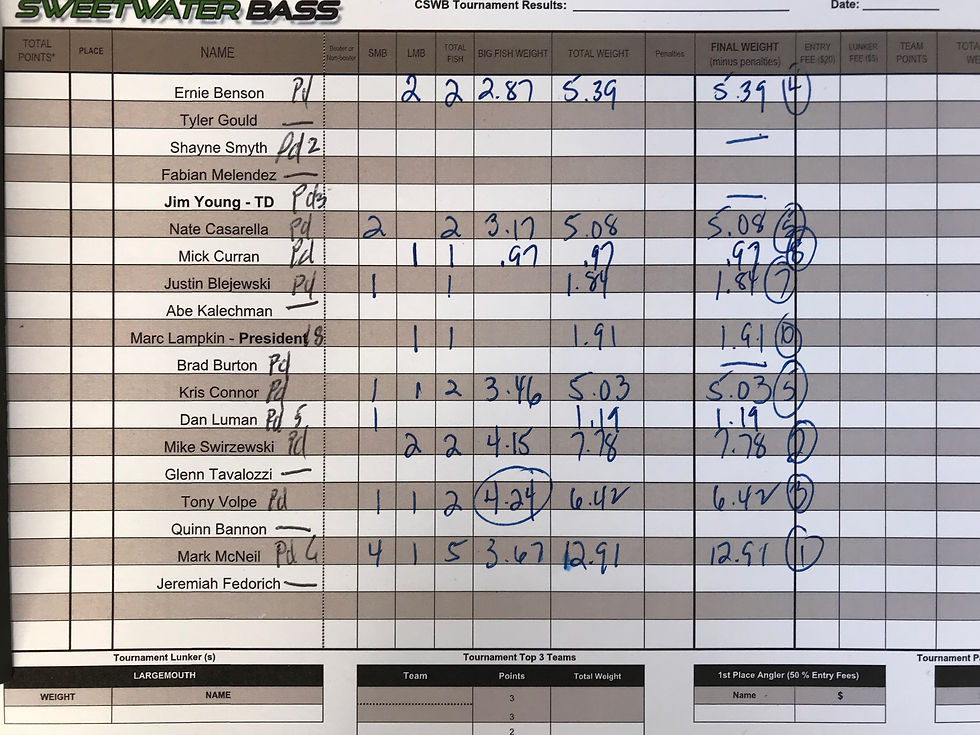 SWEETWATER BASS CSWB Tournament Results: Date:
TOTAL POINTS* PLACE NAME Boater or Non-boater SMB LMB TOTAL FISH BIG FISH WEIGHT TOTAL WEIGHT Penalties FINAL WEIGHT (minus penalties) ENTRY FEE ($20) LUNKER FEE ($5) TEAM POINTS
Ernie Benson Pd 2 2 2.87 5.39 5.39 4
Tyler Gould —
Shayne Smyth Pd 2 —
Fabian Melendez —
Jim Young - TD Pd 3 —
Nate Casarella Pd 2 2 3.17 5.08 5.08
Mick Curran Pd 1 1 .97 .97 .97
Justin Blejewski Pd 1 1 1.84 1.84 7
Abe Kalechman —
Marc Lampkin - President 8 1 1 1.91 1.91
Brad Burton Pd —
Kris Connor Pd 1 1 2 3.46 5.03 5.03 5
Dan Luman Pd 5 1 1.19 1.19
Mike Swirzewski Pd 2 2 4.15 7.78 7.78 2
Glenn Tavalozzi —
Tony Volpe Pd 1 1 2 4.24 6.42 6.42 3
Quinn Bannon —
Mark McNeil Pd 6 4 1 5 3.67 12.91 12.91 1
Jeremiah Fedorich —
Tournament Lunker (s) Tournament Top 3 Teams Tournament
LARGEMOUTH Team Points Total Weight 1st Place Angler (50 % Entry Fees)
WEIGHT NAME 3 Name $
3
2